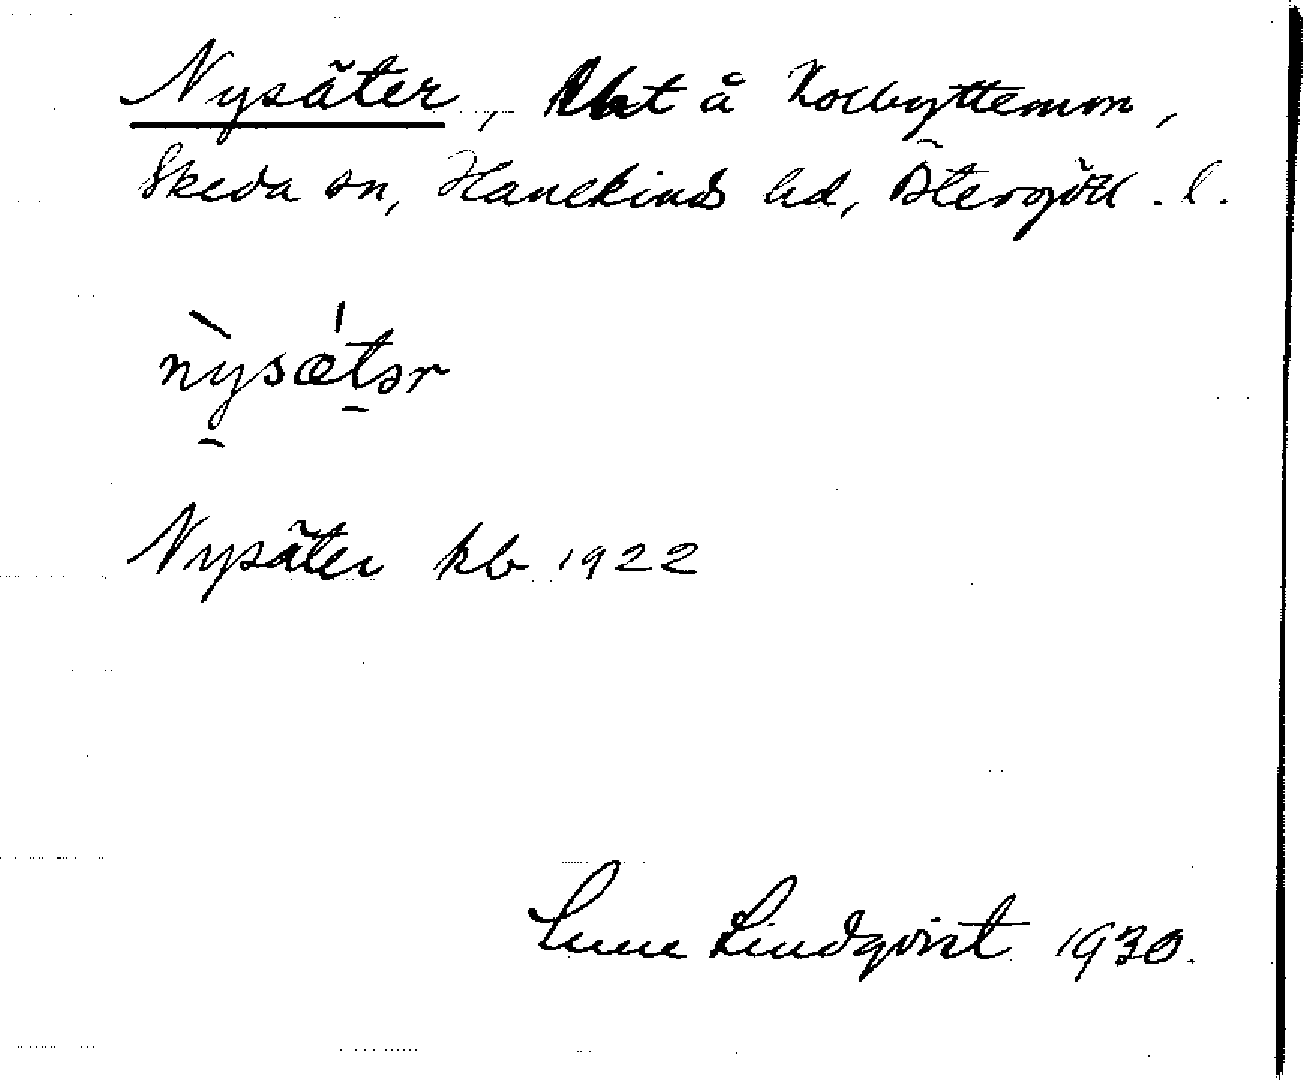 Nysäter, lht å Kolbyttemon,
Skeda sn, Hanekinds hd, Östergötl. l.
nysætər
Nysäter kb 1922
Sune Lindqvist 1930.